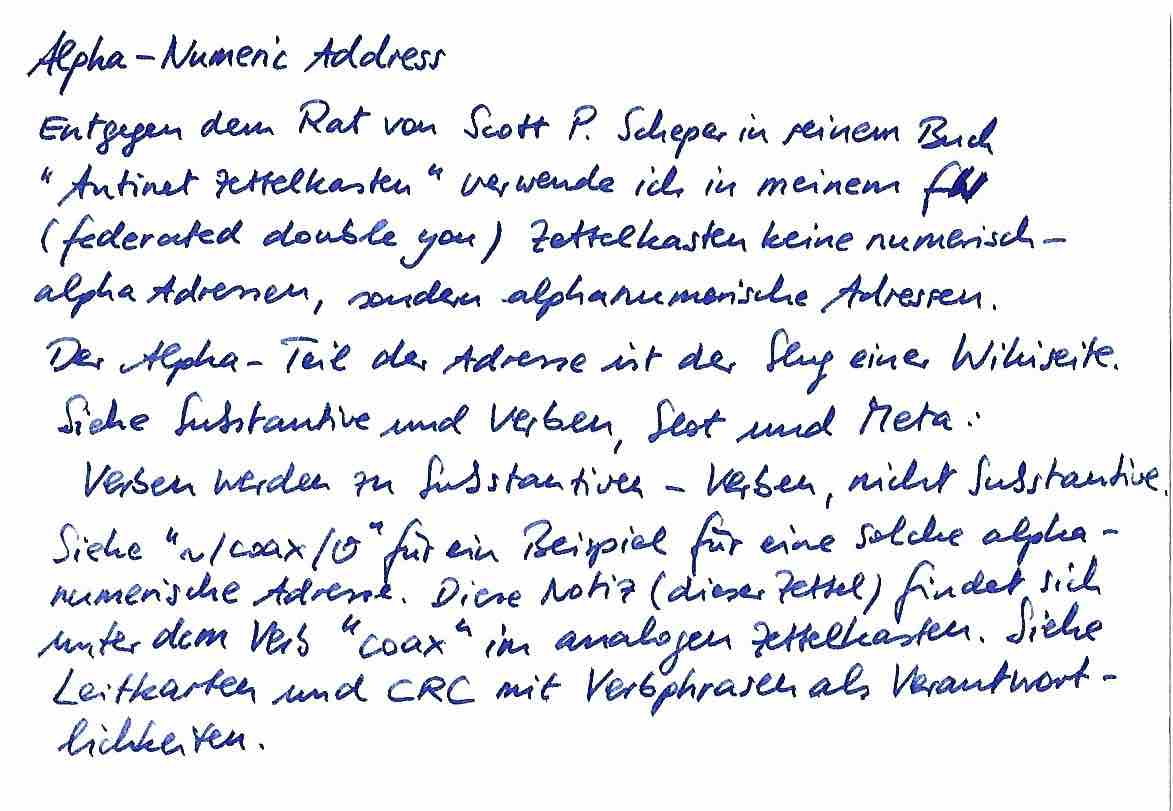 Alpha-Numeric Address
Entgegen dem Rat von Scott P. Scheper in seinem Buch
"Antinet Zettelkasten" verwende ich in meinem
(federated double you) Zettelkasten keine numerisch-
alpha Adressen, sondern alphanumerische Adressen.
Der Alpha-Teil der Adresse ist der Slug einer Wikiseite.
Siehe Substantive und Verben, Slot und Meta:
Verben werden zu Substantiven - Verben, nicht Substantive.
Siehe "~/coax/0" für ein Beispiel für eine solche alpha-
numerische Adresse. Diese Notiz (dieser Zettel) findet sich
unter dem Verb "coax" im analogen Zettelkasten. Siehe
Leitkarten und CRC mit Verbphrasen als Verantwort-
lichkeiten.